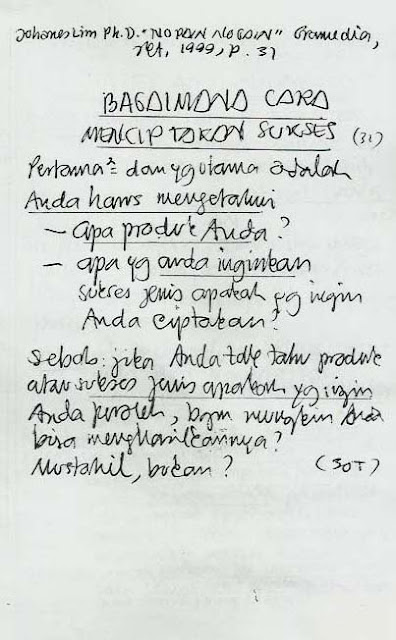 Johanes Lim Ph.D. "NO PAIN NO GAIN" Gramedia,
JKt, 1999, p. 31
BAGAIMANA CARA
MENCIPTAKAN SUKSES (31)
Pertama² dan yg utama adalah
Anda harus mengetahui
— apa produk Anda?
— apa yg anda inginkan
sukses jenis apakah yg ingin
Anda ciptakan?
Sebab: jika Anda tdk tahu produk
atau sukses jenis apakah yg ingin
Anda peroleh, bgm mungkin Anda
bisa menghasilkannya?
Mustahil, bukan? (30T)